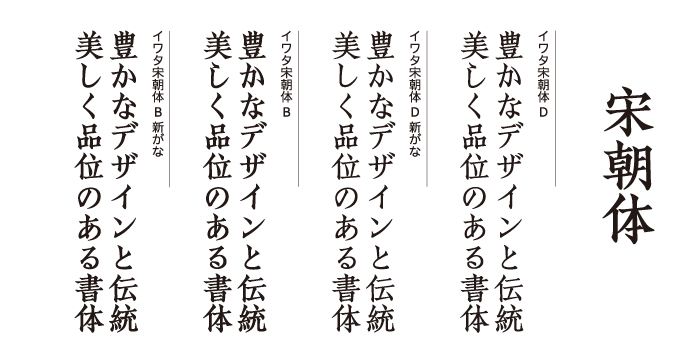 宋朝体
イワタ宋朝体 D
豊かなデザインと伝統
美しく品位のある書体
イワタ宋朝体 D 新がな
豊かなデザインと伝統
美しく品位のある書体
イワタ宋朝体 B
豊かなデザインと伝統
美しく品位のある書体
イワタ宋朝体 B 新がな
豊かなデザインと伝統
美しく品位のある書体